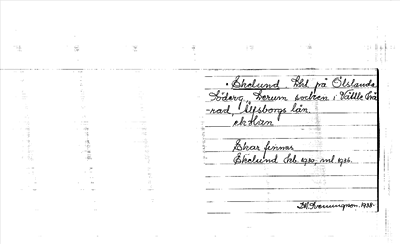 Ekelund, hhl på Ölslanda
Söderg., Lerum socken i Vättle hä-
-rad, Älfsborgs län.
ek Han
Ekar finnas
Ekelund hd. 1930; ml 1936.
1938.